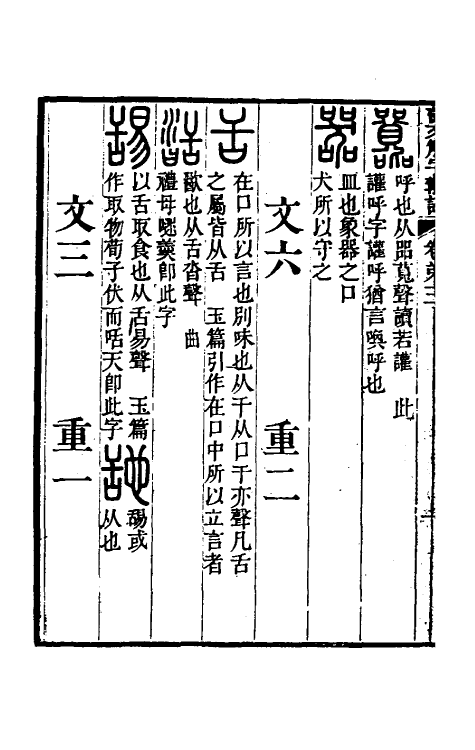 卷弟三
呼也从㗊莧聲讀若讙 此
讙呼字讙呼猶言喚呼也
器 皿也象器之口
犬所以守之
文六 重二
舌 在口所以言也別味也从干从口干亦聲凡舌
之屬皆从舌 玉篇引作在口中所以立言者
䑜 歠也从舌沓聲 曲
禮毋嚃羹卽此字
舓 以舌取食也从舌易聲 玉篇
作取物荀子伏而咶天卽此字
𦧇 舓或
从也
文三 重一